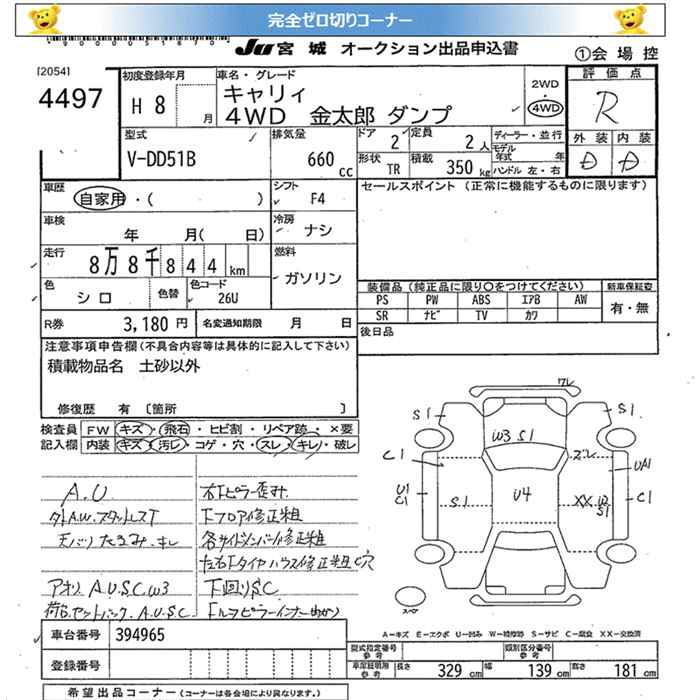 完全ゼロ切りコーナー
JU宮城 オークション出品申込書
①会場控
[2054]
4497
初度登録年月 H 8 月
車名・グレード
キャリィ
4WD 金太郎 ダンプ
2WD
4WD
評価点
R
外装 内装
D D
型式
V-DD51B
排気量
660 cc
ドア 2
定員 2 人
形状 TR
積載 350 kg
ディーラー・並行
モデル年式 年
ハンドル 左・右
車歴
自家用・( )
シフト
F4
セールスポイント (正常に機能するものに限ります)
車検
年 月( 日)
冷房
ナシ
走行
8万8千844km
燃料
ガソリン
色
シロ
色替
色コード
26U
装備品 (純正品に限り○をつけてください)
新車保証書
PS PW ABS エアB AW
SR ナビ TV カワ
有・無
R券 3,180円
名変通知期限 月 日
後日品
注意事項申告欄 (不具合内容等は具体的に記入して下さい)
積載物品名 土砂以外
修復歴 有 [箇所 ]
検査員 FW キズ・飛石・ヒビ割・リペア跡・×要
記入欄 内装 キズ・汚レ・コゲ・穴・スレ・キレ・破レ
A.U
右Fピラー歪み
外AW.スタッドレスT
Fフロア修正粗
天バリたるみ.キレ
各サイドメンバー修正粗
左右Fタイヤハウス修正粗.C穴
アオリ A.U.S.C.W3
下回りSC
A.U.S.C
ワレ
S1
S1
W3 S1
C1
ズレ
UA1
U1
C1
S1
U4
XX W2
S1
C1
スペアー
車台番号 394965
登録番号
A=キズ E=エクボ U=凹み W=補修跡 S=サビ C=腐食 XX=交換済
型式指定番号
参考
類別区分番号
参考
車庫証明用
参考
長さ 329 cm 幅 139 cm 高さ 181 cm
希望出品コーナー (コーナーは各会場により異なります。)